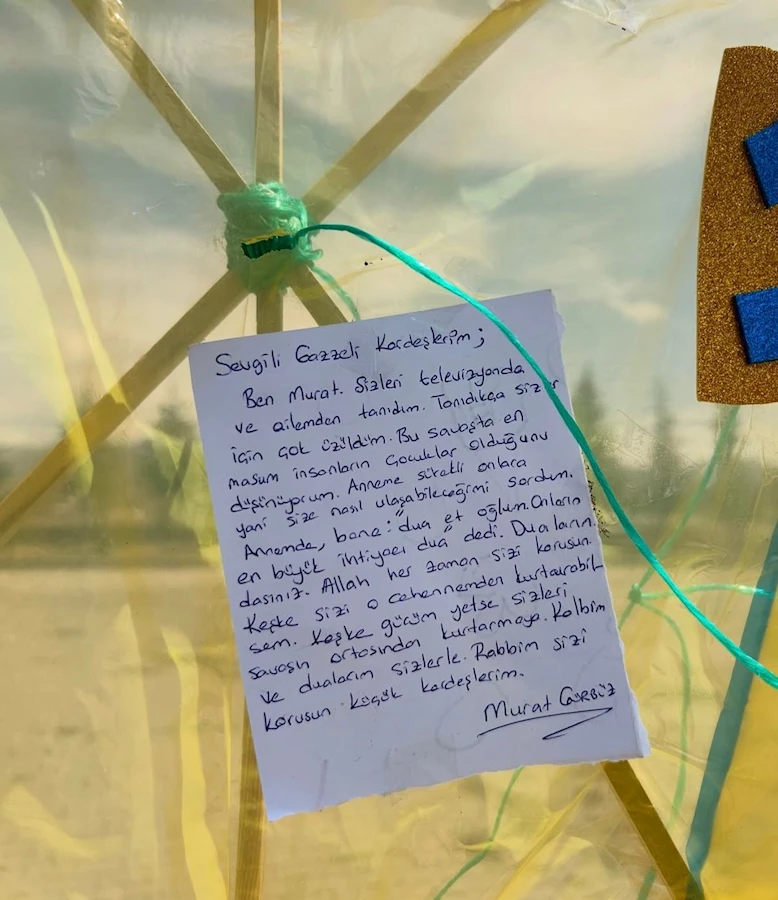 Sevgili Gazzeli Kardeşlerim;
Ben Murat. Sizleri televizyonda
ve ailemden tanıdım. Tanıdıkça sizler
için çok üzüldüm. Bu savaşta en
masum insanların çocuklar olduğunu
düşünüyorum. Anneme sürekli onlara
yani size nasıl ulaşabileceğimi sordum.
Annemde, bana: "dua et oğlum. Onların
en büyük ihtiyacı dua" dedi. Dualarım
dasınız. Allah her zaman sizi korusun.
Keşke sizi o cehennemden kurtarabil
sem. Keşke gücüm yetse sizleri
savaşın ortasından kurtarmaya. Kalbim
ve dualarım sizlerle. Rabbim sizi
korusun küçük kardeşlerim.
Murat GÜRBÜZ